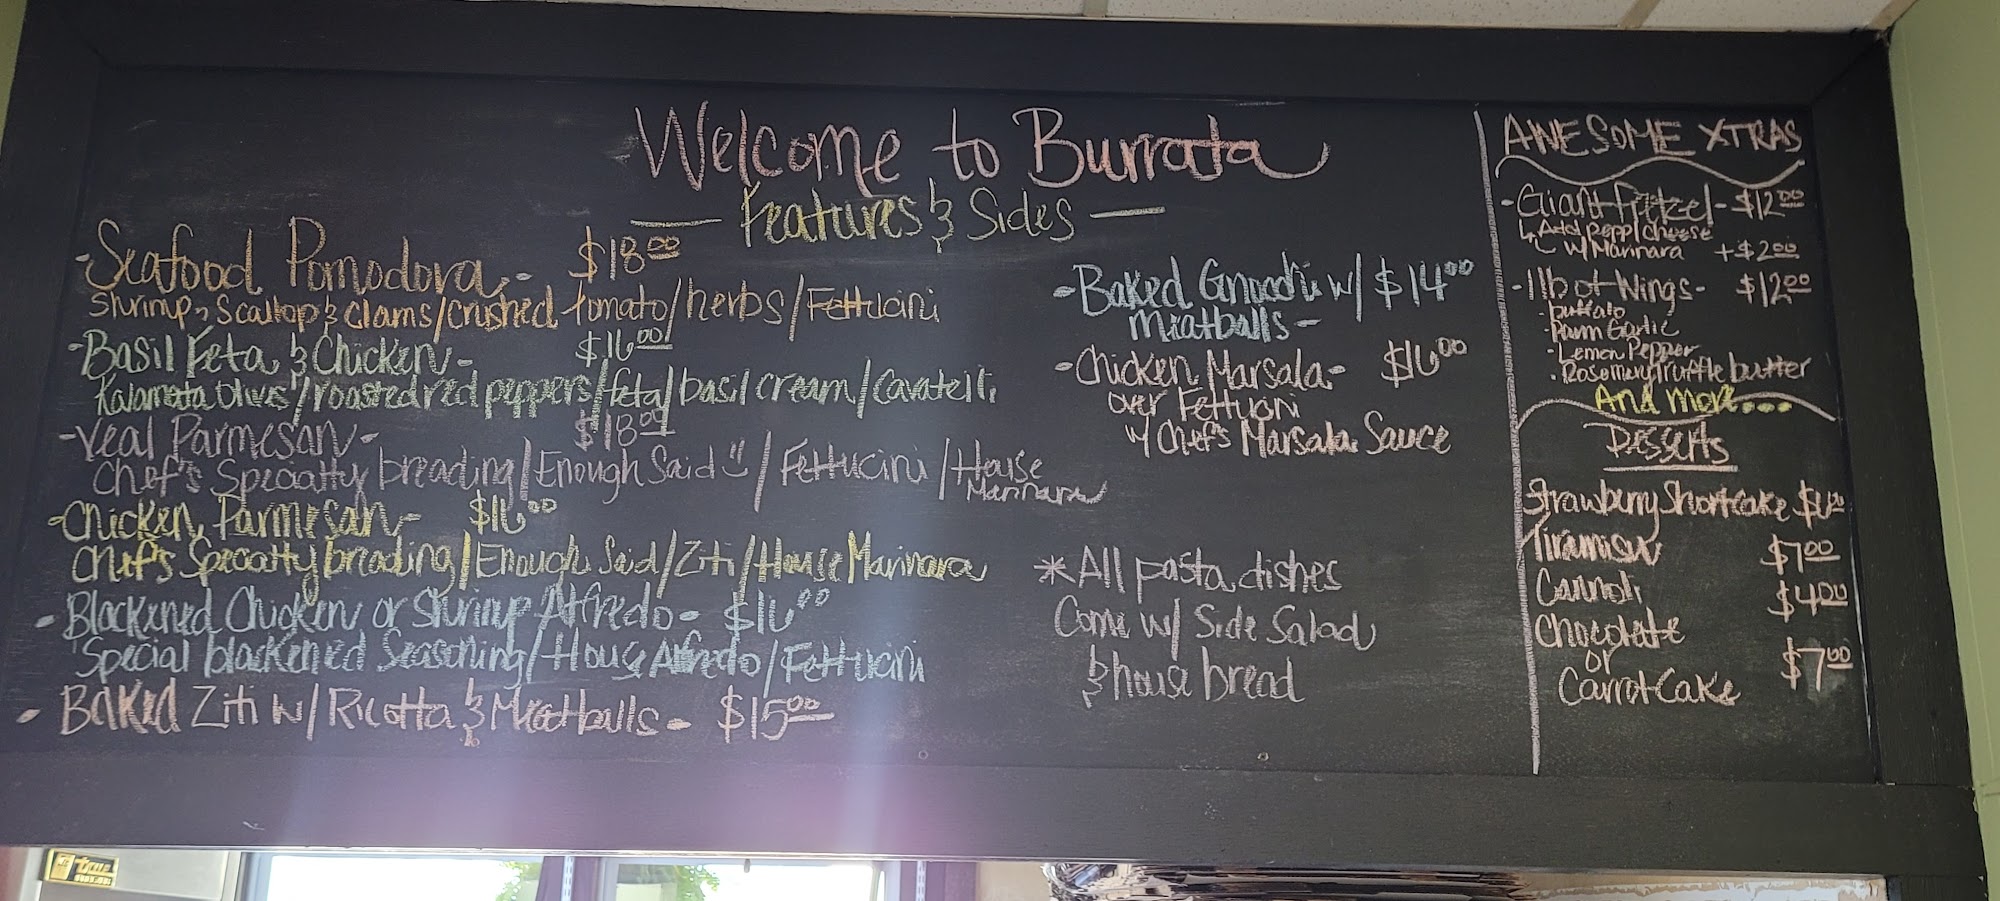 Welcome to Burrata
Features & Sides
- Seafood Pomodora - $18.00
Shrimp, Scallop & Clams/crushed tomato/herbs/Fettucini
- Basil Feta & Chicken - $16.00
Kalamata Olives/roasted red peppers/feta/basil cream/Cavatelli
- Veal Parmesan - $18.00
Chef's Specialty breading/Enough Said/Fettucini/House
Marinara
- Chicken Parmesan - $16.00
Chef's Specialty breading/Enough Said/Ziti/House Marinara
- Blackened Chicken or Shrimp Alfredo - $16.00
Special blackened Seasoning/House Alfredo/Fettucini
- Baked Ziti w/Ricotta & Meatballs - $15.00
- Baked Gnocchi w/ $14.00
Meatballs -
- Chicken Marsala - $16.00
over Fettucini
w/ Chef's Marsala Sauce
* All pasta dishes
Come w/ Side Salad
& house bread
AWESOME XTRAS
- Giant Pretzel - $12.00
Add pepp/cheese
w/Marinara +$2.00
- 1lb of Wings - $12.00
- buffalo
- Parm Garlic
- Lemon Pepper
- Rosemary truffle butter
And more...
Desserts
Strawberry Shortcake
Tiramisu $7.00
Cannoli $4.00
Chocolate
or
Carrot Cake $7.00
true